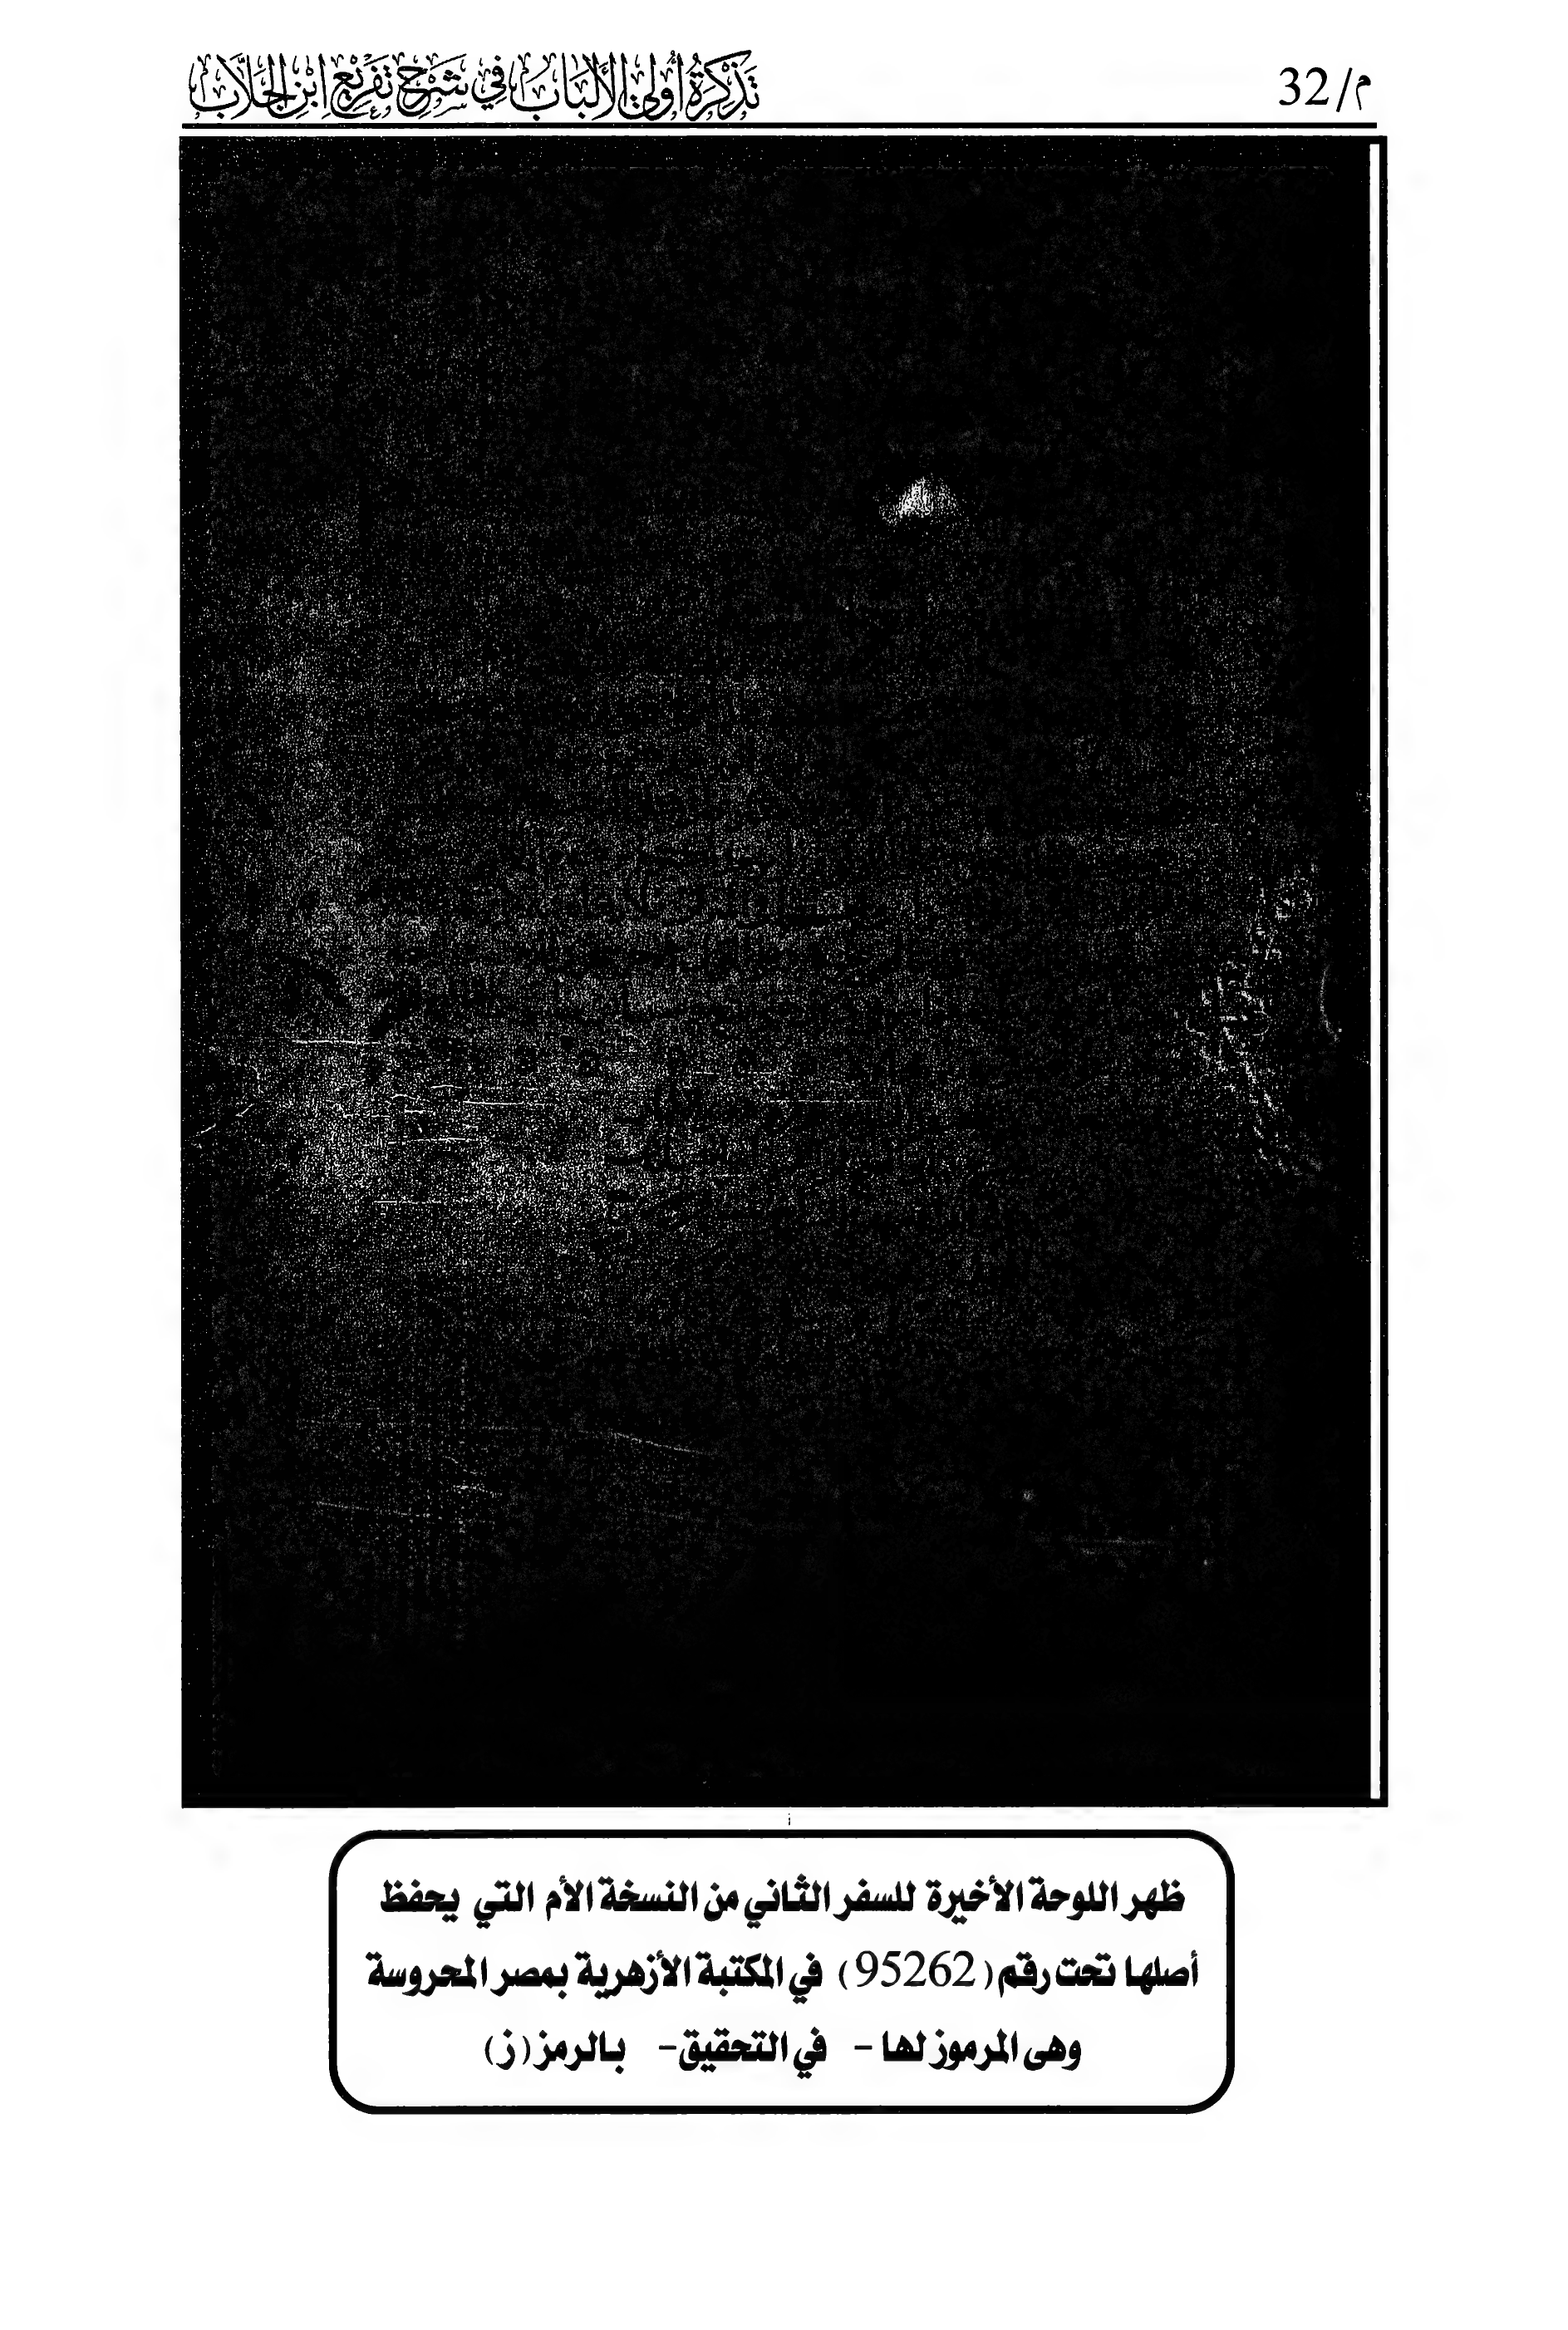 م/32
تَذْكِرَةُ أُولِي الأَلْبَابِ فِي شَرْحِ تَفْرِيعِ ابْنِ الجَلَّابِ
ظهر اللوحة الأخيرة للسفر الثاني من النسخة الأم التي يحفظ
أصلها تحت رقم (95262) في المكتبة الأزهرية بمصر المحروسة
وهى المرموز لها - في التحقيق - بالرمز (ز)